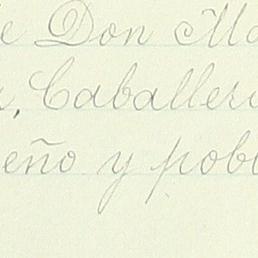 e Don Ma
, Caballer
eño y pobl